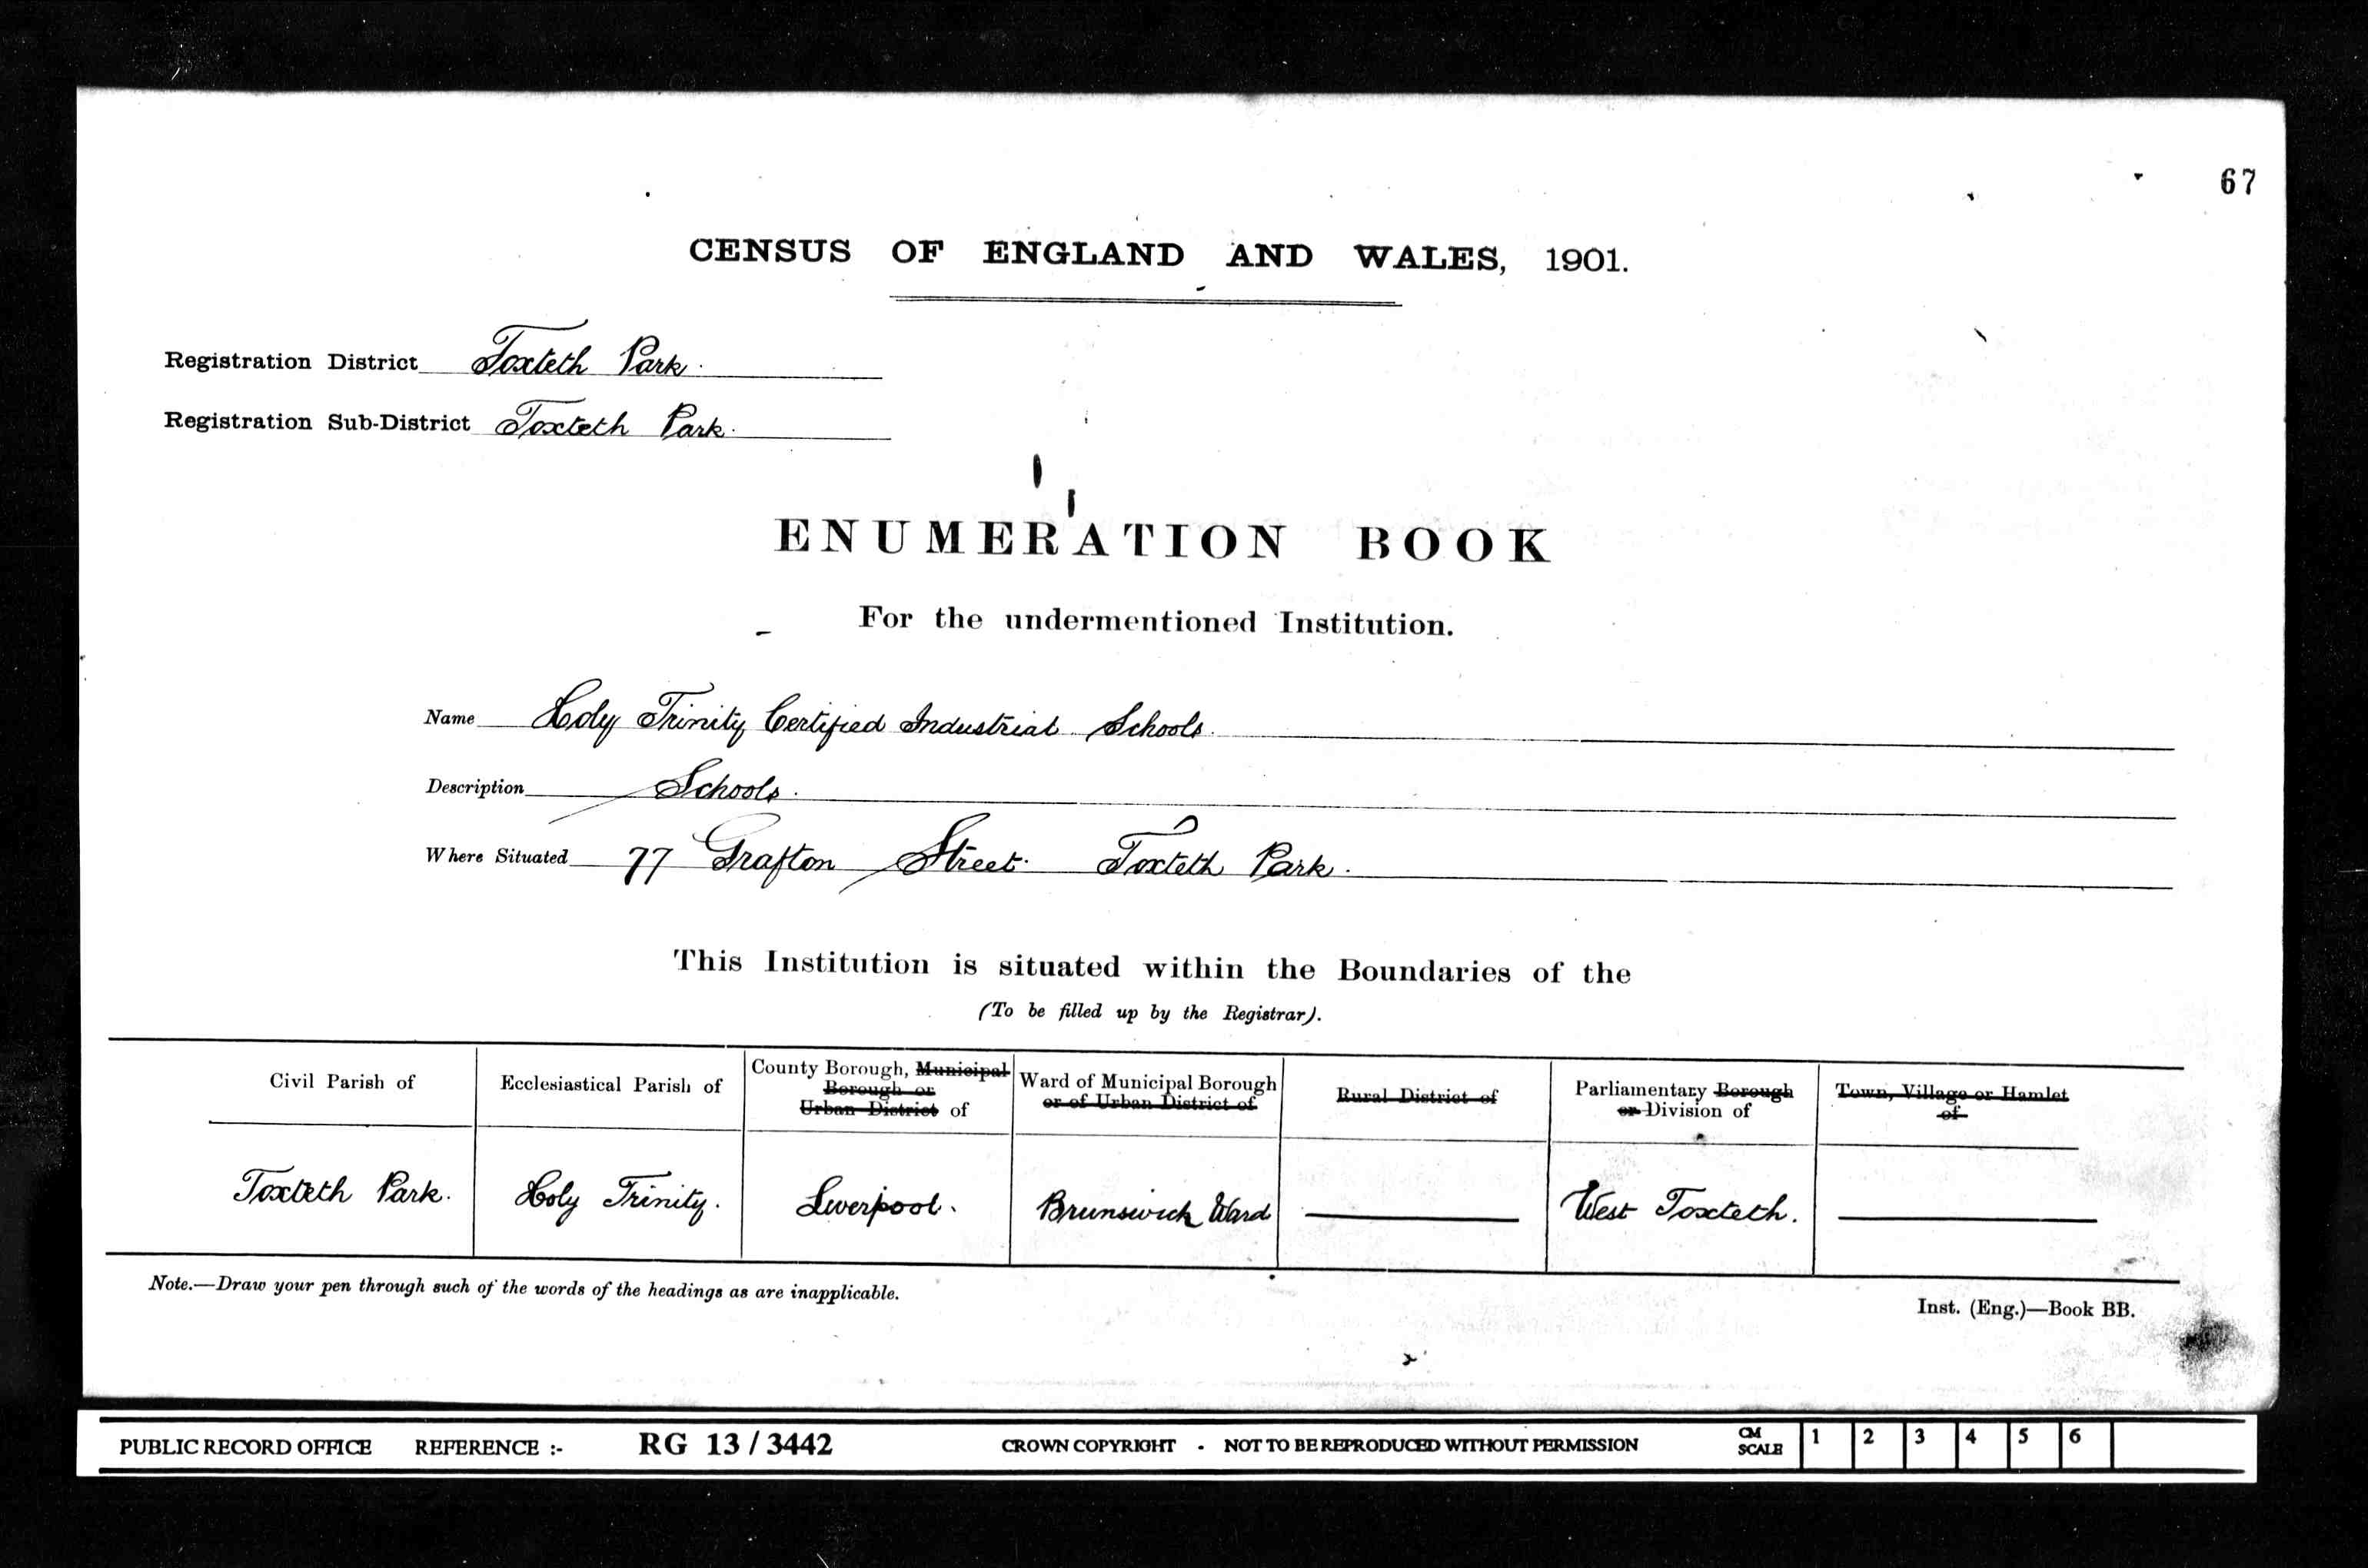 67
CENSUS OF ENGLAND AND WALES, 1901.
Registration District Toxteth Park.
Registration Sub-District Toxteth Park.
ENUMERATION BOOK
For the undermentioned Institution.
Name Holy Trinity Certified Industrial Schools.
Description Schools.
Where Situated 77 Grafton Street. Toxteth Park.
This Institution is situated within the Boundaries of the
(To be filled up by the Registrar).
Civil Parish of
Ecclesiastical Parish of
County Borough, Municipal
Borough or
Urban District of
Ward of Municipal Borough
or of Urban District of
Rural District of
Parliamentary Borough
or Division of
Town, Village or Hamlet
of
Toxteth Park.
Holy Trinity.
Liverpool.
Brunswick Ward
West Toxteth.
Note.—Draw your pen through such of the words of the headings as are inapplicable.
Inst. (Eng.)—Book BB.
PUBLIC RECORD OFFICE REFERENCE :- RG 13 / 3442 CROWN COPYRIGHT - NOT TO BE REPRODUCED WITHOUT PERMISSION
CM
SCALE
1 2 3 4 5 6